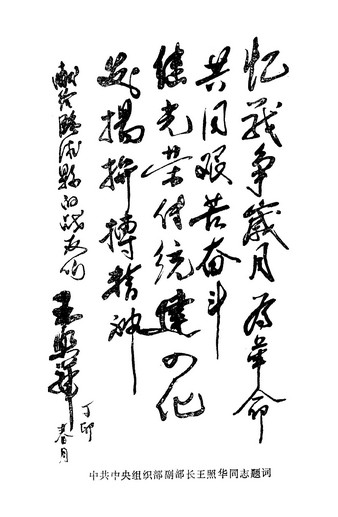 忆战争歲月为革命
共同艰苦奋斗
继光荣传统建四化
发揚拚搏精神
献给臨沭縣的战友们
王照華
丁卯
春月
中共中央组织部副部长王照华同志题词